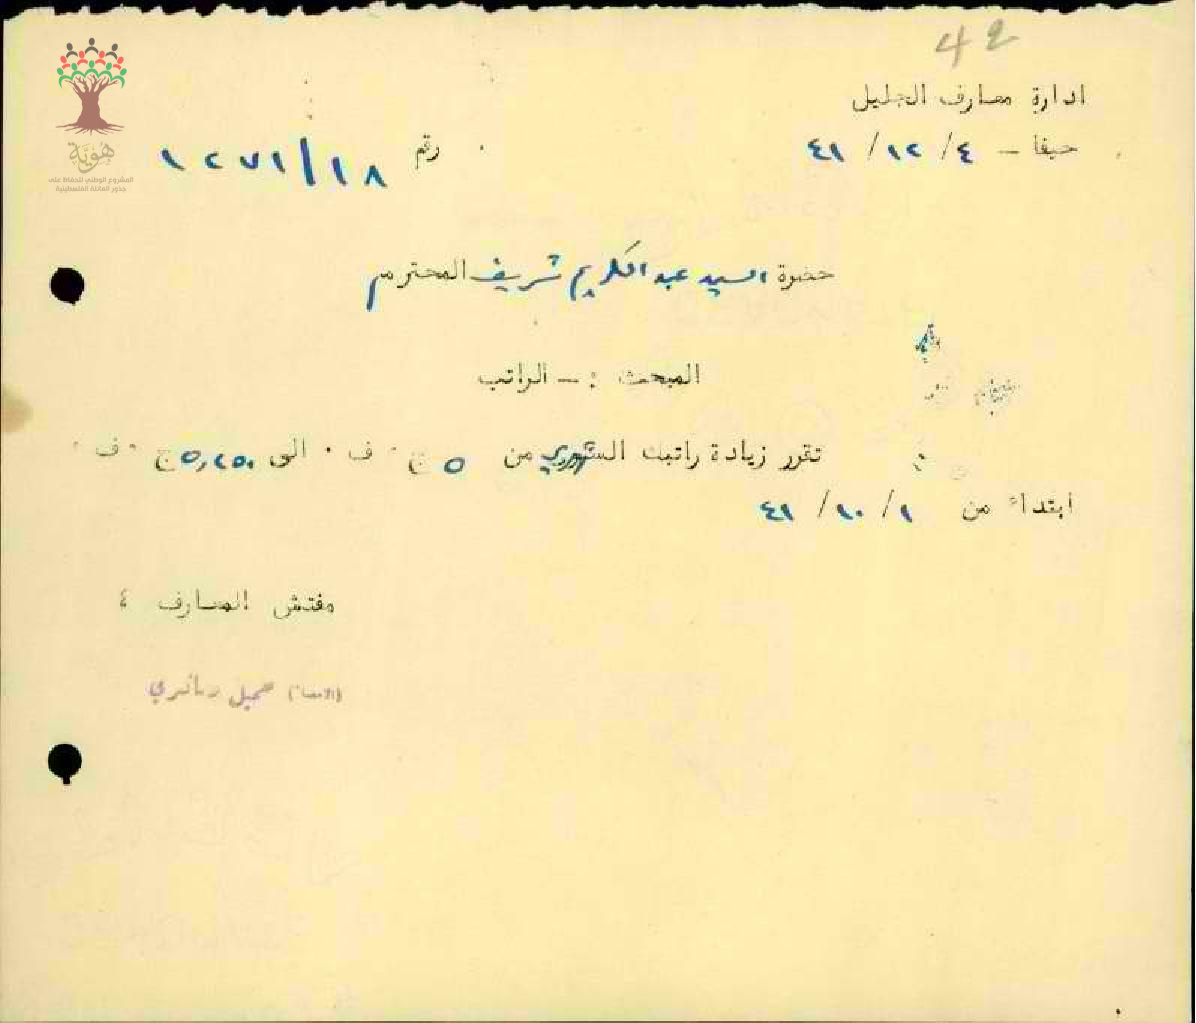 42
ادارة معارف الجليل
حيفا - ٤/ ١٢/ ٤١
رقم ١٢٧١/١٨
هوية
المشروع الوطني للحفاظ على
جذور العائلة الفلسطينية
حضرة السيد عبد الكريم شريف المحترم
المبحث :- الراتب
تقرر زيادة راتبك الشهري من ٥ ج٠ ف ٠ الى ٥,٢٥٠ ج ٠ ف ٠
ابتداء من ١/ ١٠/ ٤١
مفتش المعارف ٤
(الامضاء) جميل